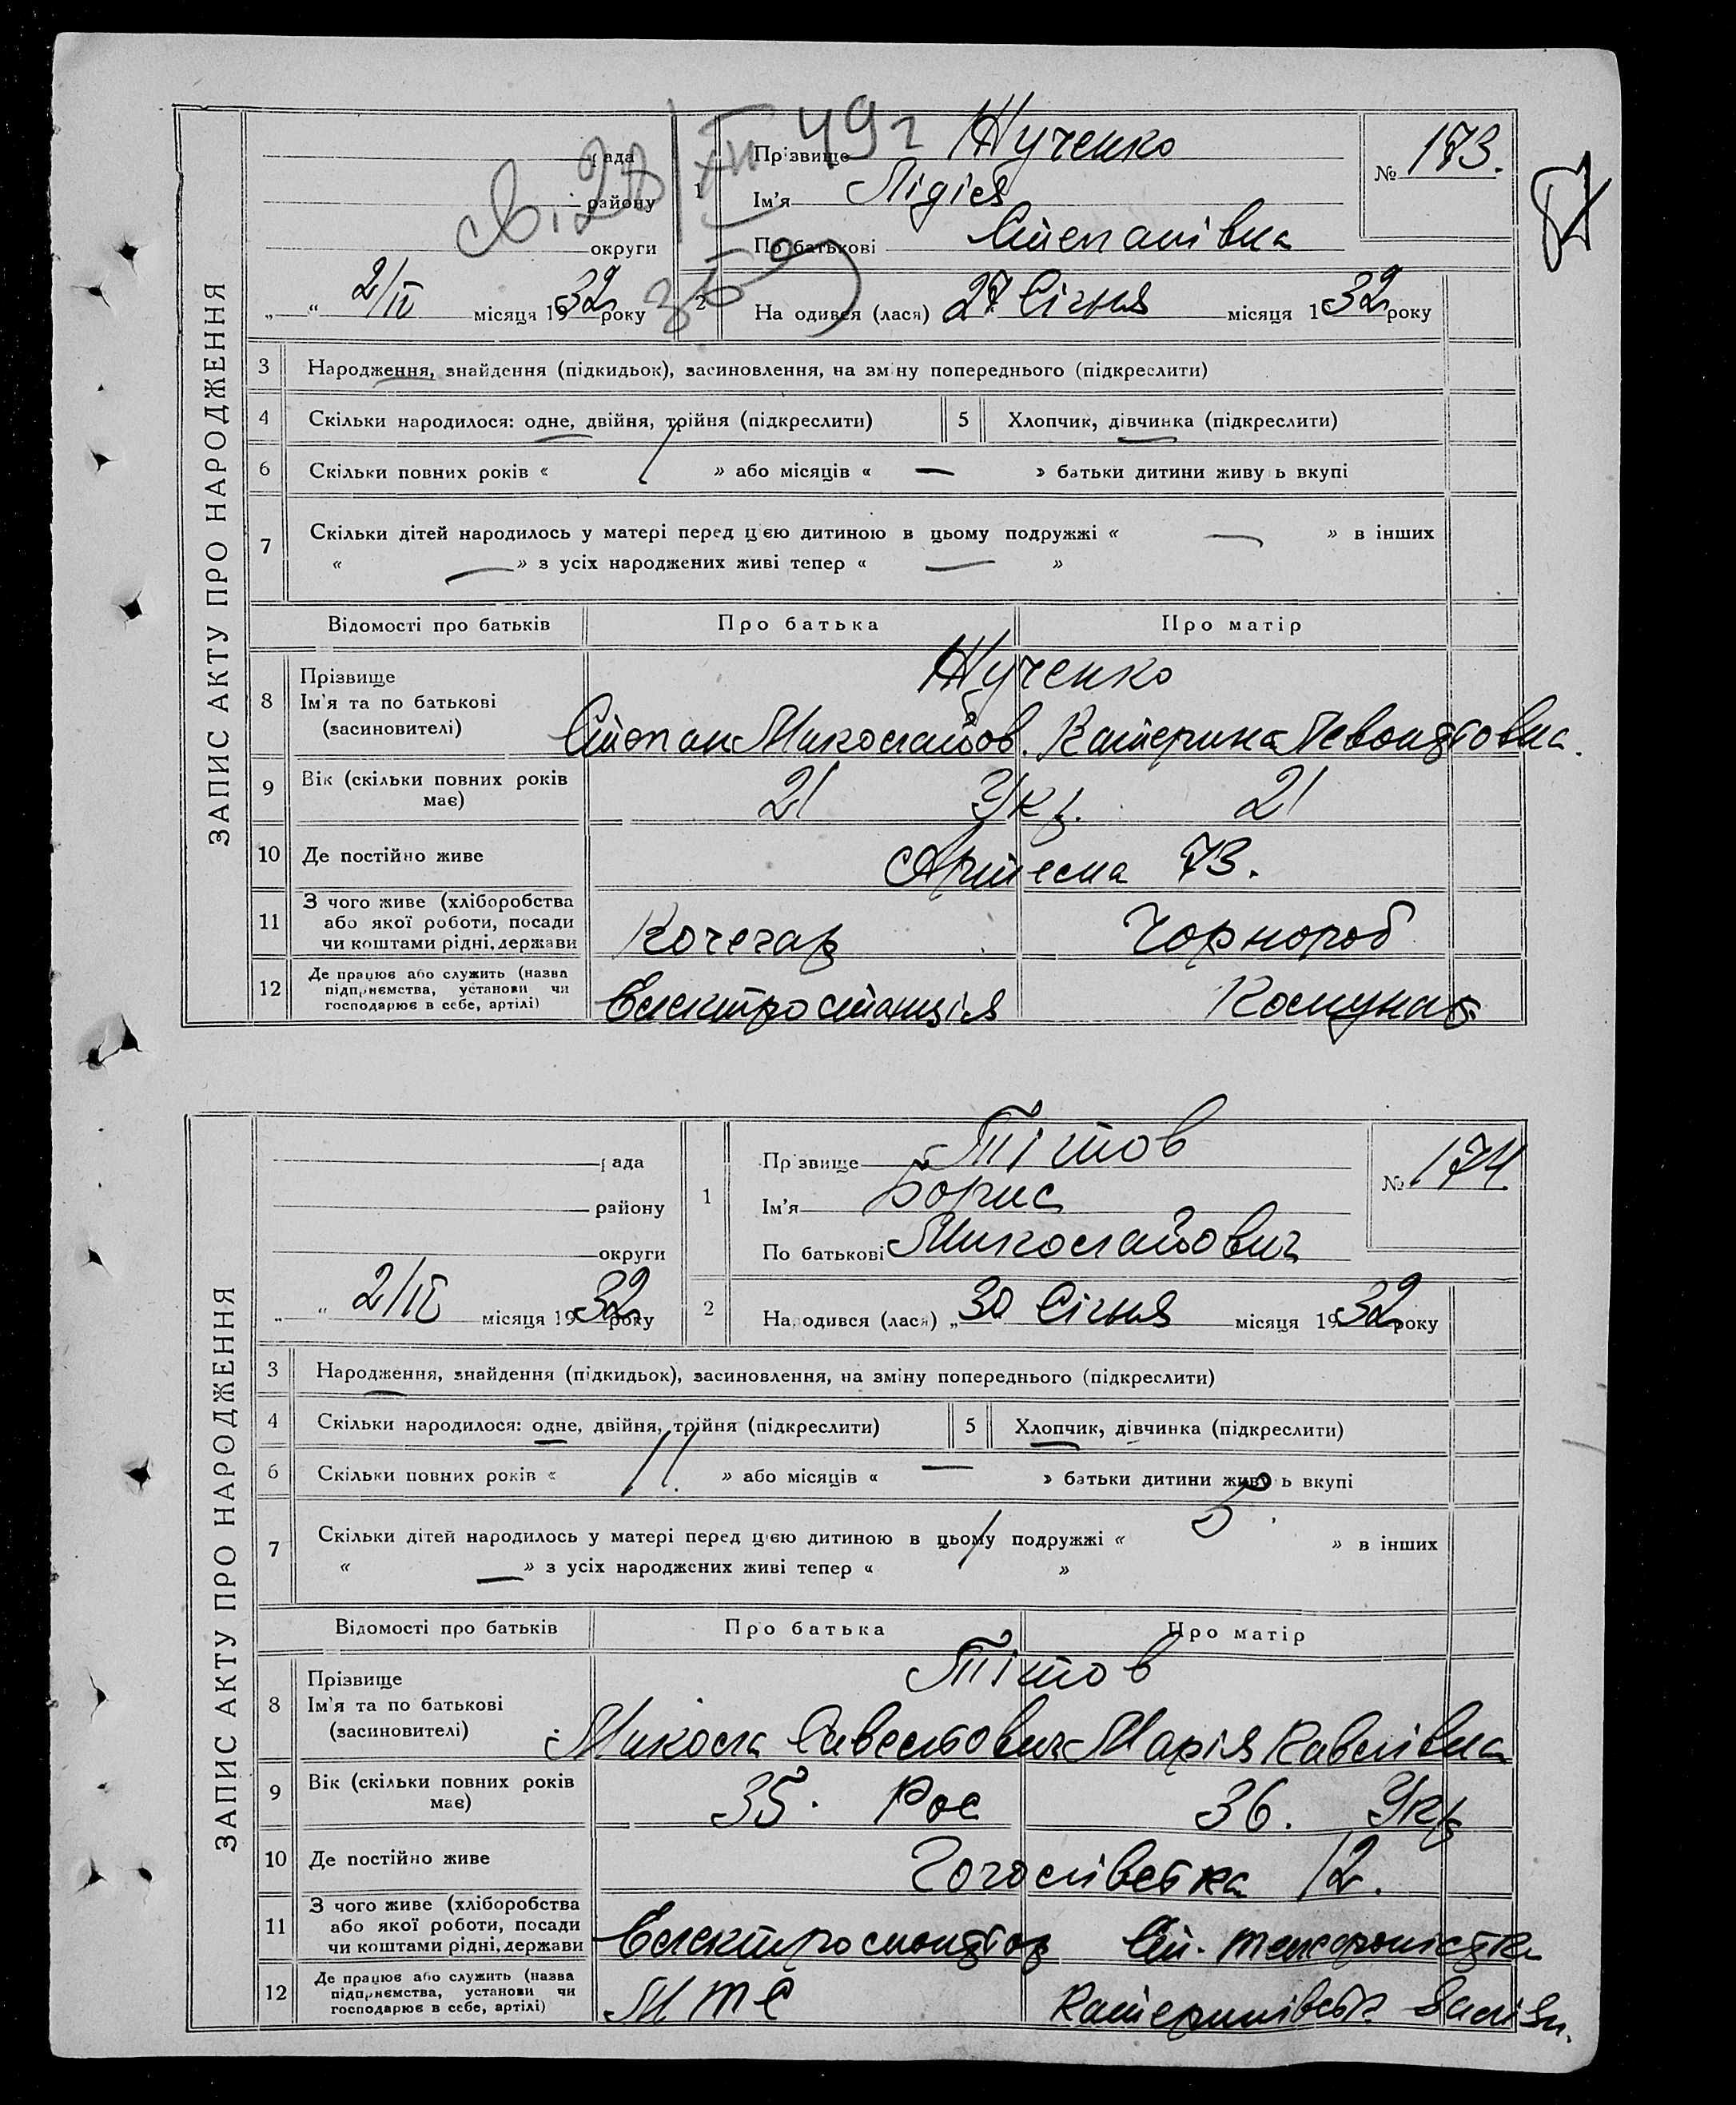 ЗАПИС АКТУ ПРО НАРОДЖЕННЯ
рада
району
округи
„ “ 2/II місяця 1932 року
28/XII 49 г
1
Прізвище Жученко
Ім'я Лідія
По батькові Степанівна
№ 173.
2
Народився (лася) 27 Січня місяця 1932 року
3 Народження, знайдення (підкидьок), засиновлення, на зміну попереднього (підкреслити)
4 Скільки народилося: одне, двійня, трійня (підкреслити)
5 Хлопчик, дівчинка (підкреслити)
6 Скільки повних років « 1 » або місяців « — » батьки дитини живуть вкупі
7 Скільки дітей народилось у матері перед цією дитиною в цьому подружжі « — » в інших
« — » з усіх народжених живі тепер « — »
Відомості про батьків Про батька Про матір
8 Прізвище
Ім'я та по батькові
(засиновителі)
Жученко
Степан Миколайов. Катерина
9 Вік (скільки повних років має)
21 Укр. 21
10 Де постійно живе
Артема 73.
11 З чого живе (хліборобства
або якої роботи, посади
чи коштами рідні, держави
Кочегар Чорнороб
12 Де працює або служить (назва
підприємства, установи чи
господарює в себе, артілі)
Електростанція
ЗАПИС АКТУ ПРО НАРОДЖЕННЯ
рада
району
округи
„ “ 2/II місяця 1932 року
1
Прізвище Тітов
Ім'я Борис
По батькові Миколайович
№ 174.
2
Народився (лася) „30 Січня місяця 1932 року
3 Народження, знайдення (підкидьок), засиновлення, на зміну попереднього (підкреслити)
4 Скільки народилося: одне, двійня, трійня (підкреслити)
5 Хлопчик, дівчинка (підкреслити)
6 Скільки повних років « 11. » або місяців « — » батьки дитини живуть вкупі
7 Скільки дітей народилось у матері перед цією дитиною в цьому подружжі « 5 » в інших
« — » з усіх народжених живі тепер « »
Відомості про батьків Про батька Про матір
8 Прізвище
Ім'я та по батькові
(засиновителі)
Тітов
Микола Марія Павлівна
9 Вік (скільки повних років має)
35. Рос 36. Укр
10 Де постійно живе
Гоголівська 12.
11 З чого живе (хліборобства
або якої роботи, посади
чи коштами рідні, держави
Електромонтер Ст. телефоністка
12 Де працює або служить (назва
підприємства, установи чи
господарює в себе, артілі)
МТС Катеринівськ. Залізн.